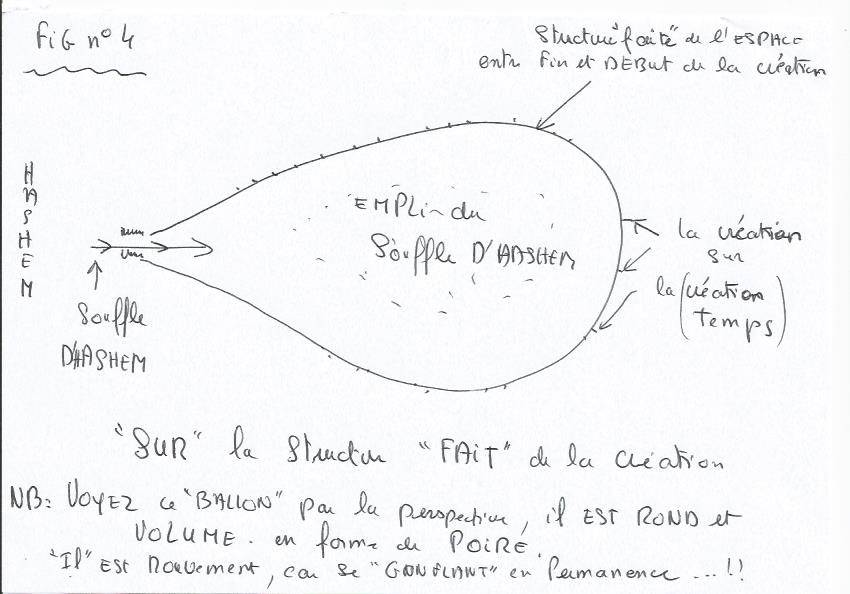 FiG n° 4
Structure "faite" de l'ESPACE
entre Fin et DEBUT de la création
HASHEM
EMPLi du
Souffle D'HASHEM
la création
sur
la (création
temps)
Souffle
D'HASHEM
"SUR" la structure "FAiT" de la création
NB: VOYEZ ce "BALLON" par la perspective, il EST ROND et
VOLUME. en forme de POiRE.
"Il" EST mouvement, car se "GONFLANT" en Permanence ...!!